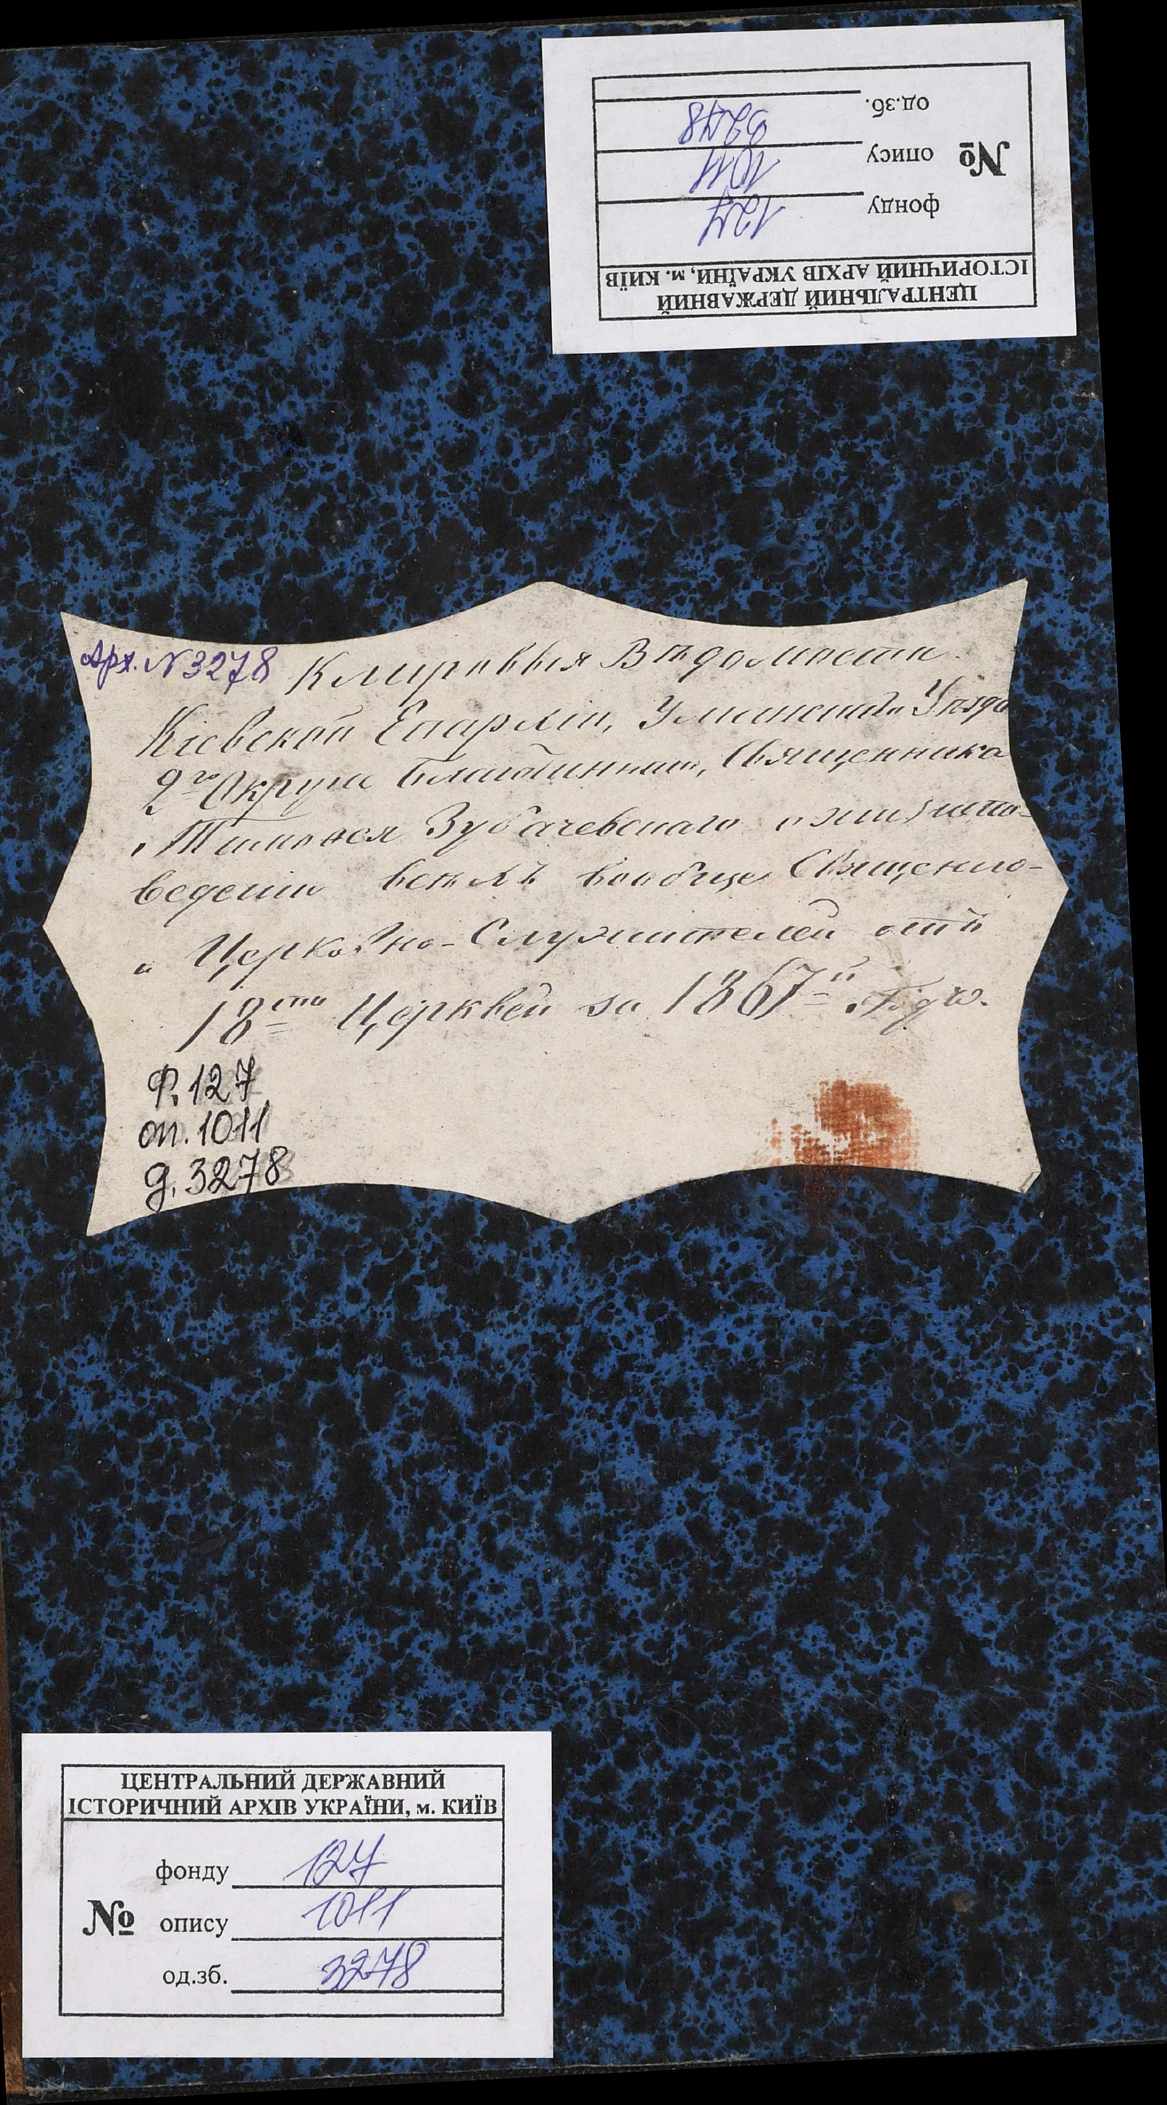 ЦЕНТРАЛЬНИЙ ДЕРЖАВНИЙ
ІСТОРИЧНИЙ АРХІВ УКРАЇНИ, м. КИЇВ
фонду 127
№ опису 1011
од.зб. 3278
Арх. N 3278
Клировыя Вѣдомости
Кіевской Епархіи, Уманскаго Уѣзда
2го Округа Благочиннаго, Священника
Зубачевскаго о
ведении всѣмъ вообще Священно-
и Церковно-Служителей отъ
18ти Церквей за 1867й Годъ.
Ф. 127
оп. 1011
д. 3278
ЦЕНТРАЛЬНИЙ ДЕРЖАВНИЙ
ІСТОРИЧНИЙ АРХІВ УКРАЇНИ, м. КИЇВ
фонду 127
№ опису 1011
од.зб. 3278